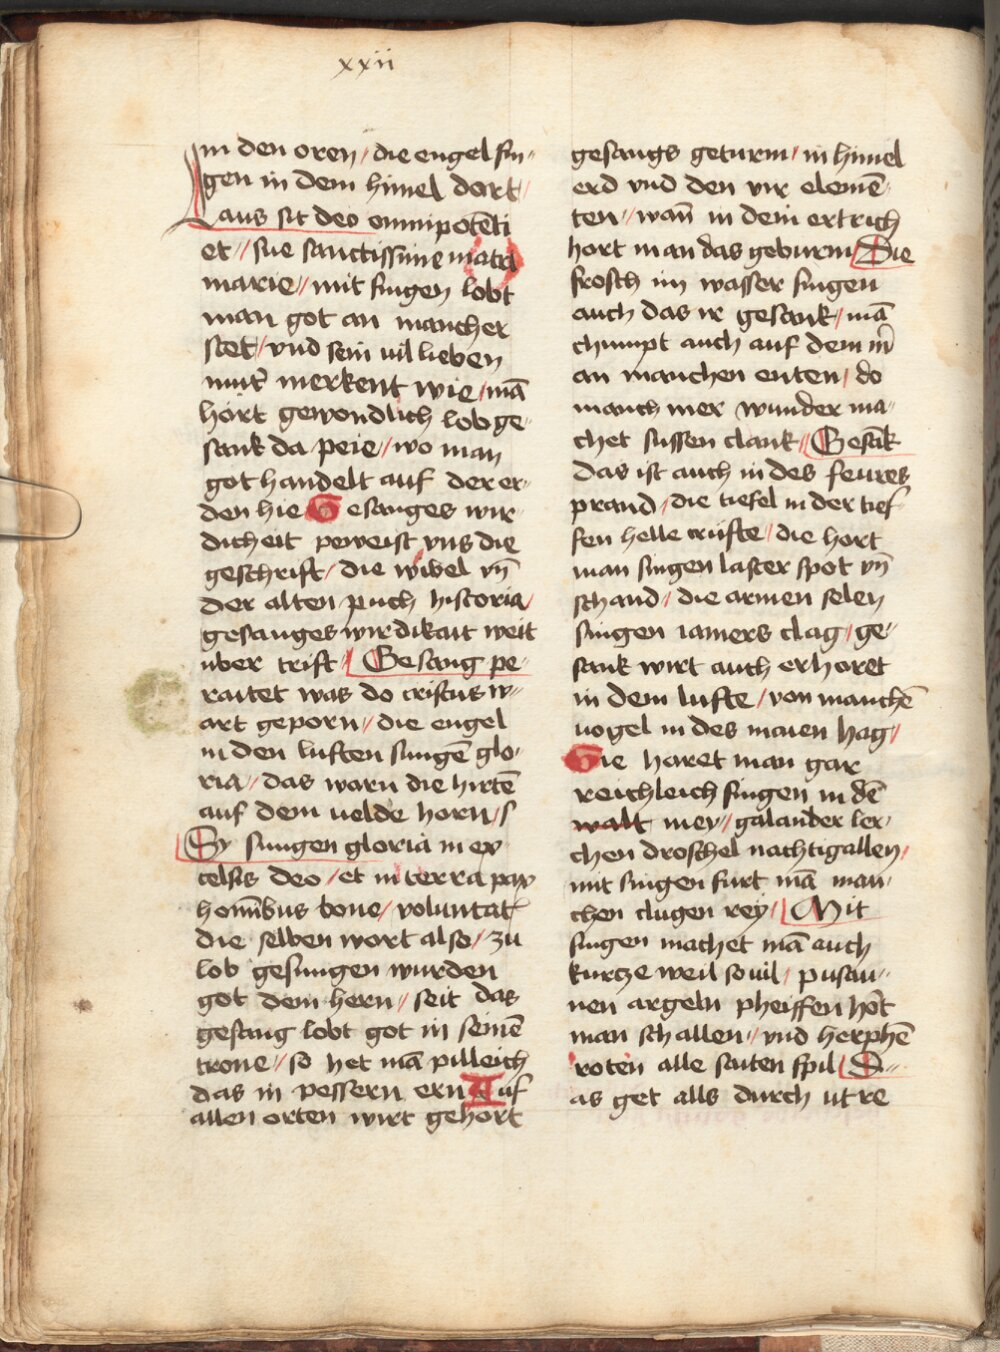 xxii
in den oren / die engel sin⸗
gen in dem himel dort /
Laus sit deo omnipotēti
et // sue sanctissime matri
marie // mit singen lobt
man got an mancher
stet / vnd sein uil lieben
mut᷑ merkent wie / mā
hort gewondlich lob ge⸗
sank da peie // wo man
got handelt auf der er⸗
den hie Gesanges wir⸗
dicheit peweist vns die
geschrift / die wibel vn̄
der alten puch historia /
gesanges wirdikait weit
uber trift / Gesang pe⸗
raitet was do cristus w⸗
art geporn // die engel
in den luften sungē glo⸗
ria // das warn die hirtē
auf dem uelde horn / s
Sy sungen gloria in ex
celsis deo / et in terra pax
homībus bone / voluntat᷑
die selben wort also / zu
lob gesungen wurden
got dem hern // seit das
gesang lobt got in seinē
trone // so het mā pilleich
das in pessern ern Auf
allen orten wirt gehort
gesangs geturm / in himel
erd vnd den vir elemē⸗
ten // wan̄ in dem ertrich
hort man das geburm Die
frosch im wasser singen
auch das ir gesank / mā
chumpt auch auf dem m᷑
an manchen enten / do
manch mer wunder ma⸗
chet sussen clank // Gesāk
das ist auch in des feures
prand / die tiefel in der tief⸗
fen helle crufte / die hort
man singen laster spot vn̄
schand / die armen selen
singen iamers clag / ge⸗
sank wirt auch erhoret
in dem lufte / von manchē
uogel in des maien hag /
Sie horet man gar
reichleich singen in dē
walt mey // galander ler⸗
chen droschel nachtigallen /
mit singen furt mā man⸗
chen clugen rey / Mit
singen machet mā auch
kurtze weil so uil / pusau⸗
nen orgeln pheiffen ho᷑t
man schallen // vnd herphē
roten alle saiten spil D⸗
as get alls durch ut re